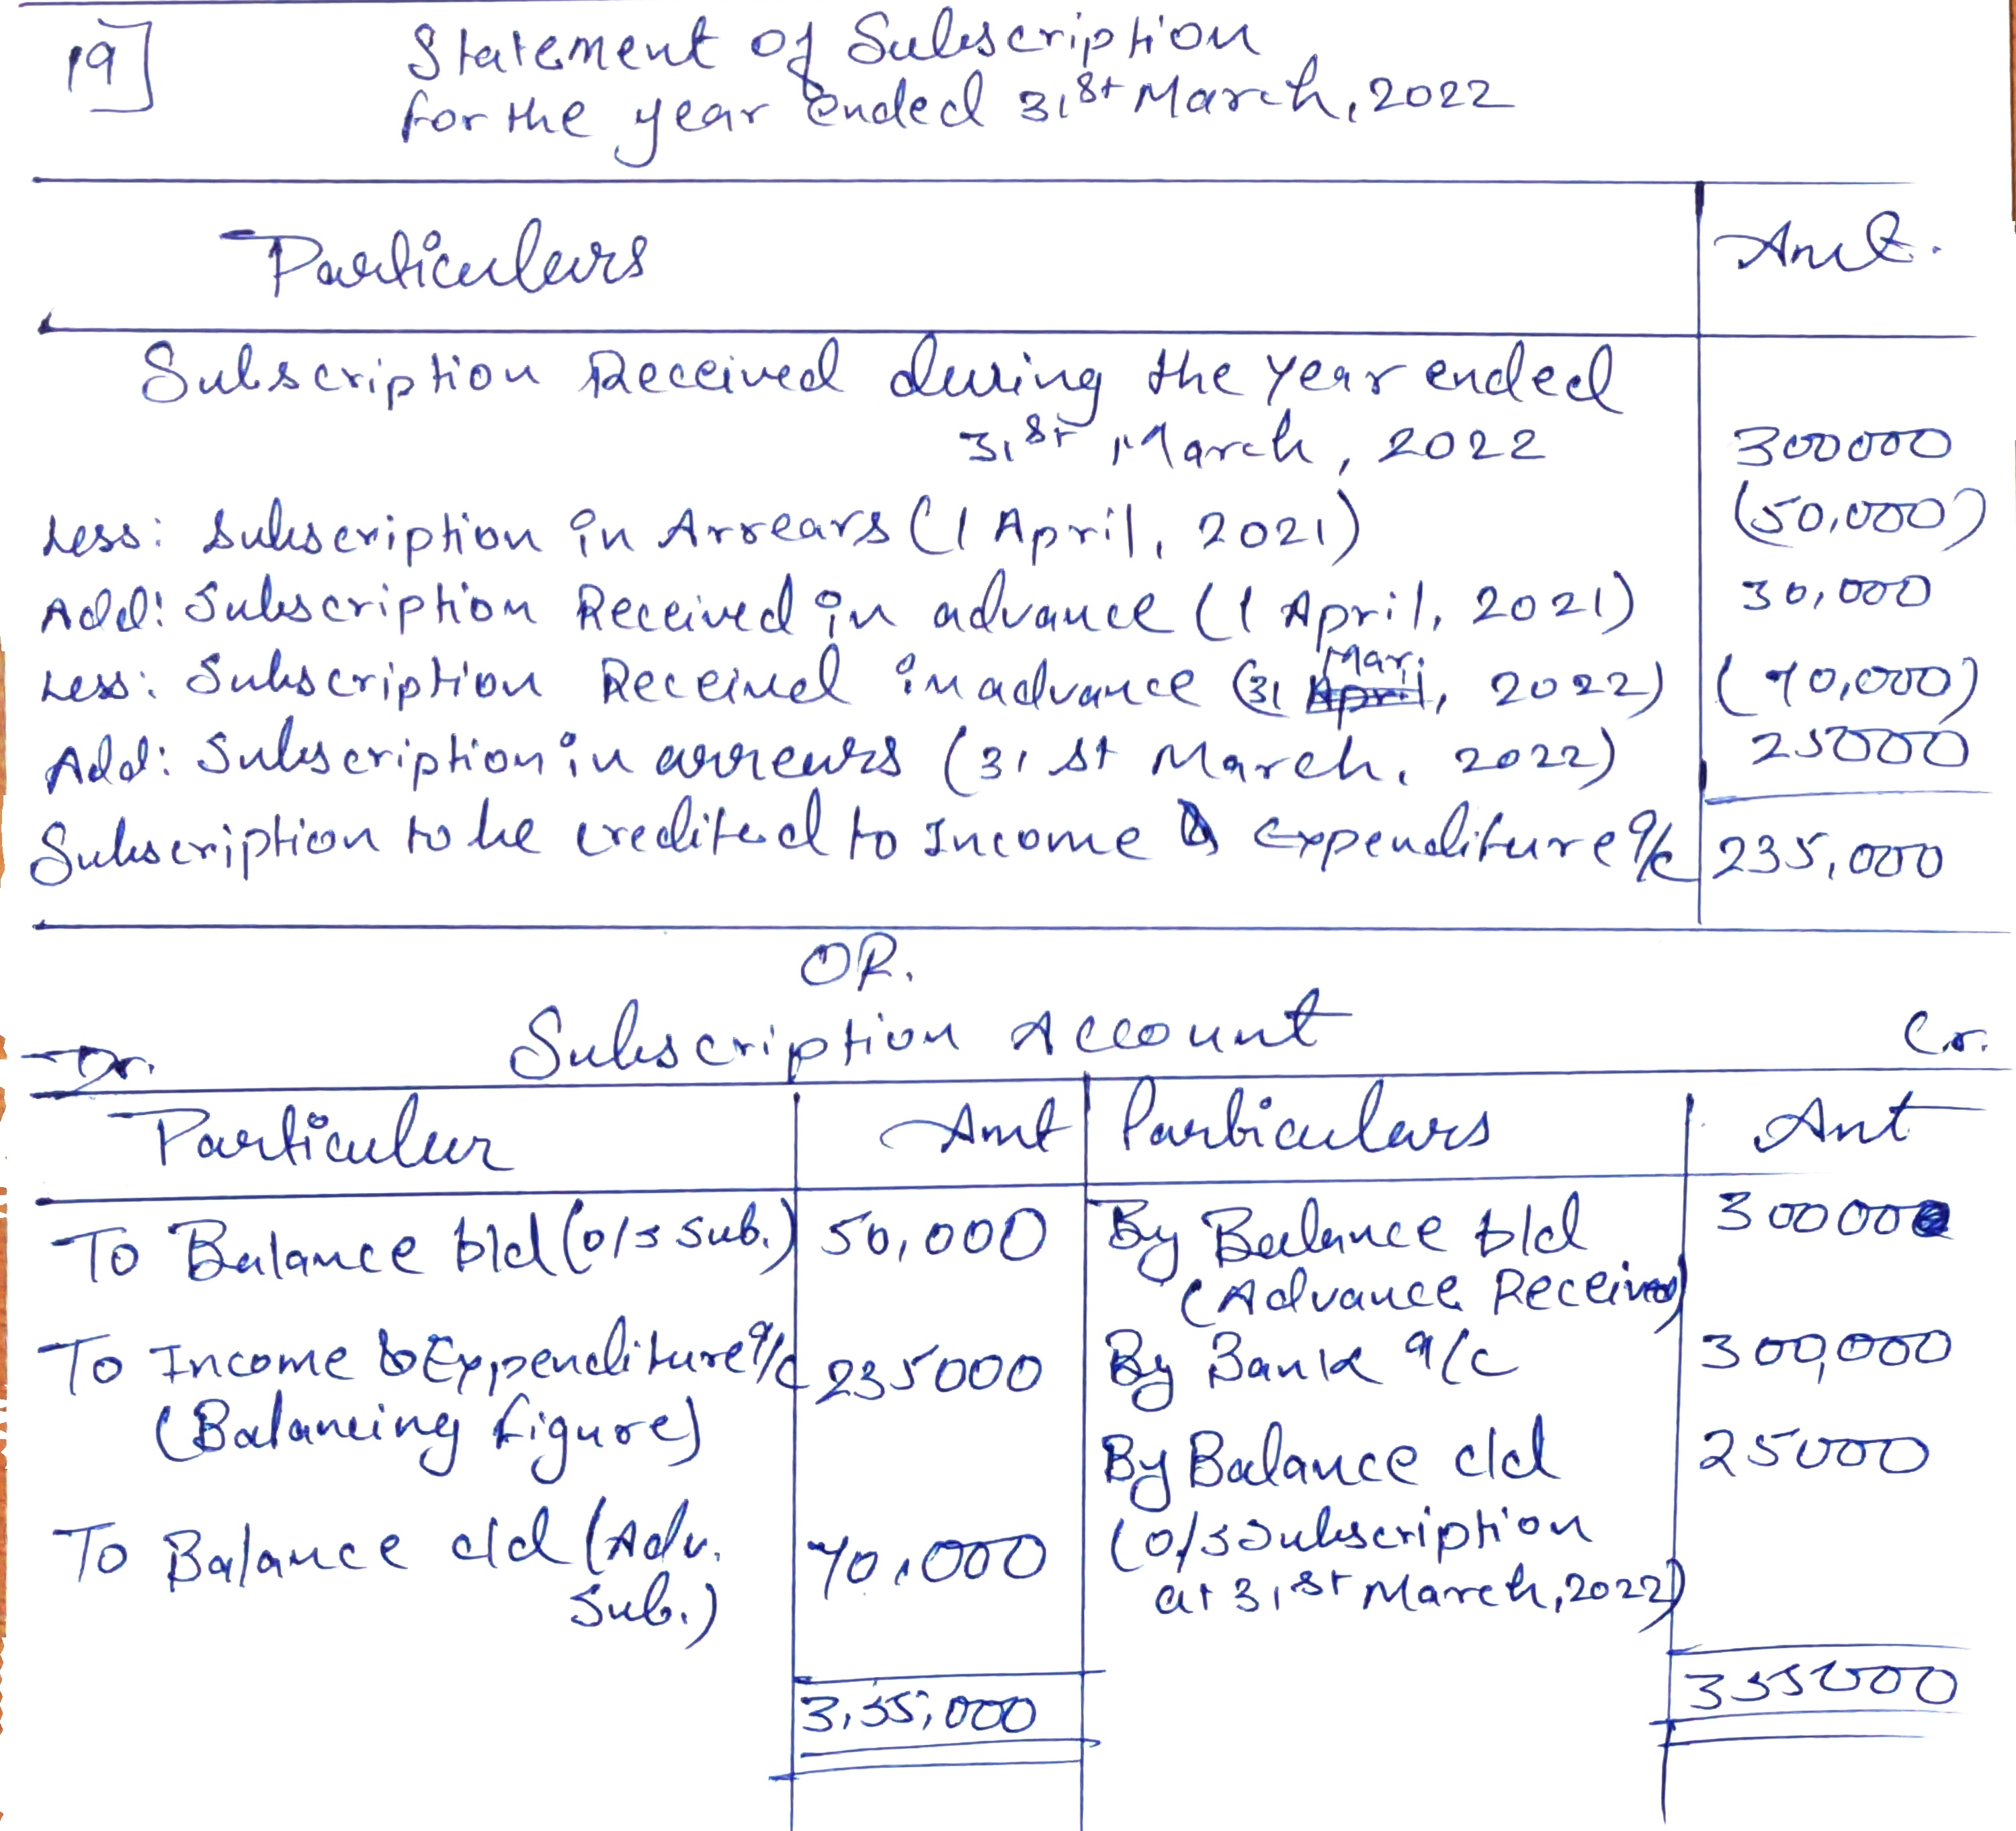 19]
Statement of Subscription
for the year ended 31st March, 2022
Particulars Amt.
Subscription Received during the Year ended
31st March, 2022 300000
Less: Subscription in Arrears (1 April, 2021) (50,000)
Add: Subscription Received in advance (1 April, 2021) 30,000
Less: Subscription Received in advance (31 Mar, 2022) (70,000)
Add: Subscription in arrears (31st March, 2022) 25000
Subscription to be credited to Income & Expenditure a/c 235,000
OR.
Dr. Subscription Account Cr.
Particular Amt Particulars Amt
To Balance b/d (o/s sub.) 50,000 By Balance b/d 300000
(Advance Received)
To Income & Expenditure a/c 235000 By Bank a/c 300,000
(Balancing figure) By Balance c/d 25000
To Balance c/d (Adv. 70,000 (o/s Subscription
Sub.) at 31st March, 2022)
3,55,000 355000